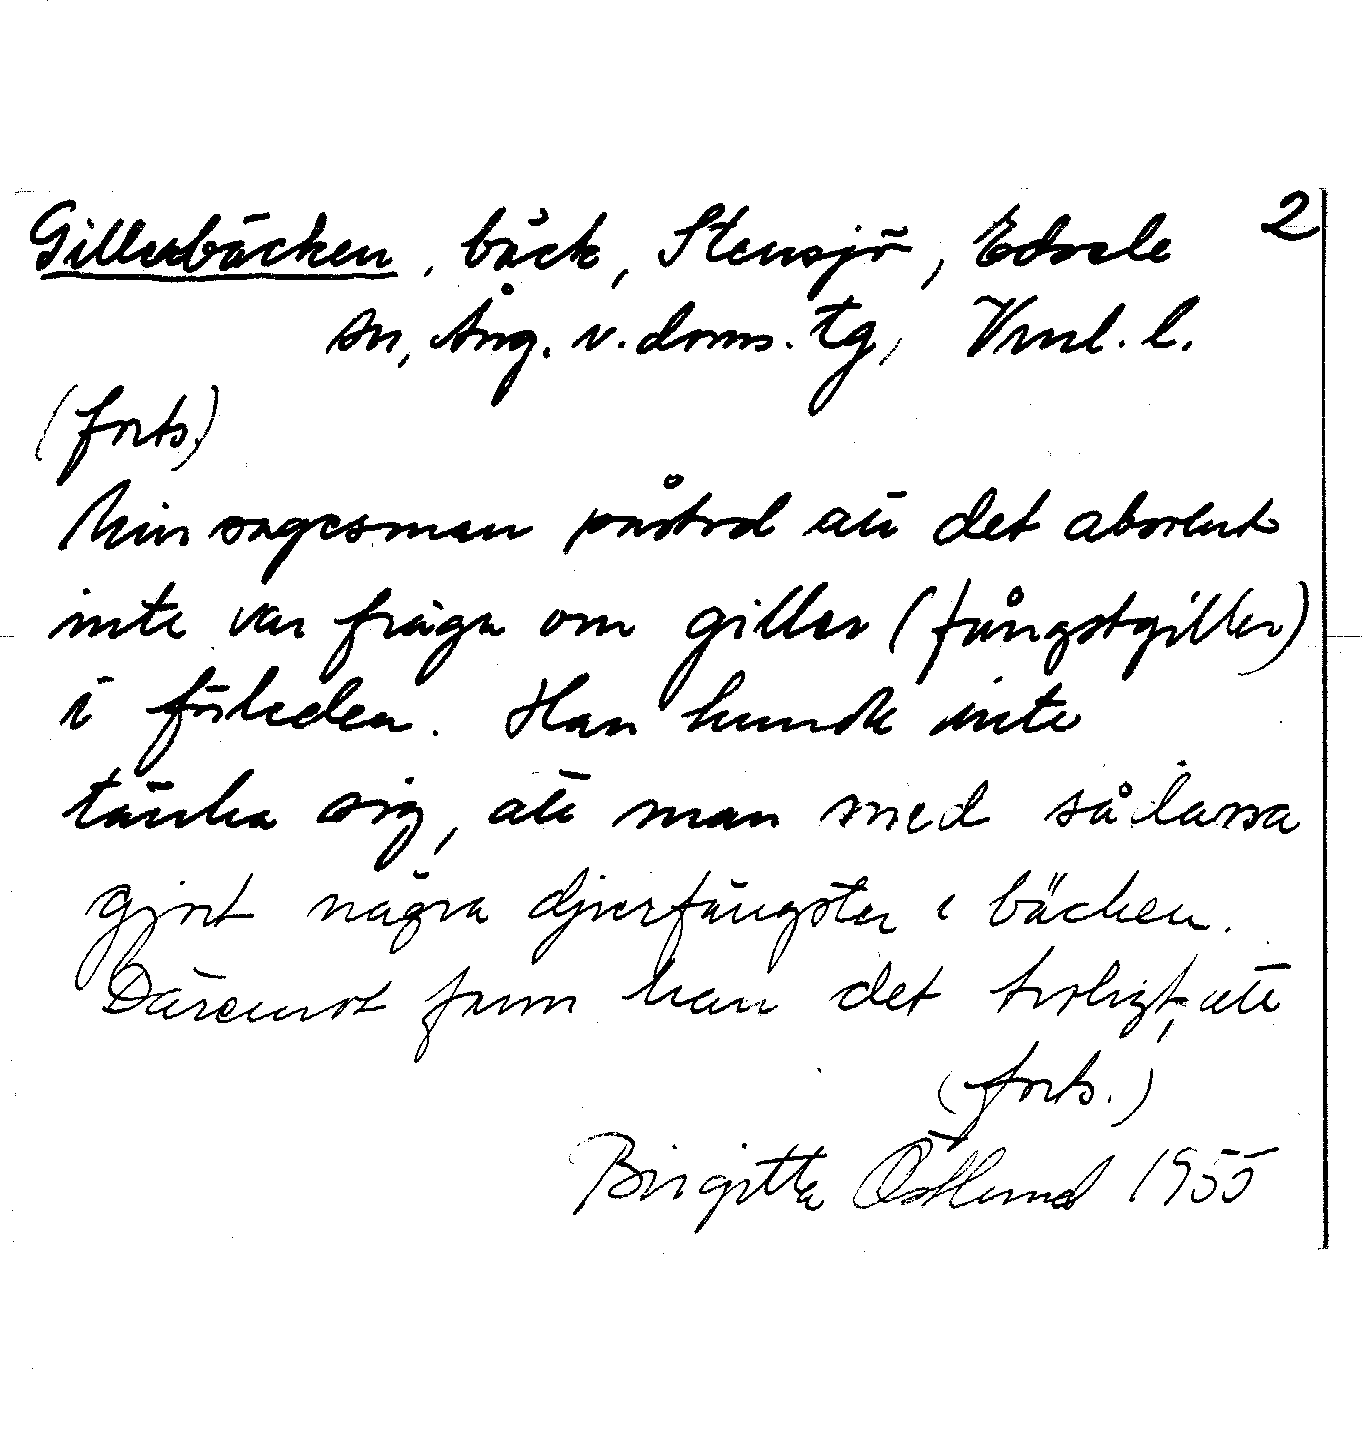 Gillerbäcken, bäck, Stensjö, Edsele 2
sn, Ång. v. doms. tg, Vnl. l.
(forts.)
Min sagesman påstod att det absolut
inte var fråga om giller (fångstgiller)
i förleden. Han kunde inte
tänka sig, att man med sådana
gjort några djurfångster i bäcken.
Däremot fann han det troligt, att
(forts.)
Birgitta Östlund 1955